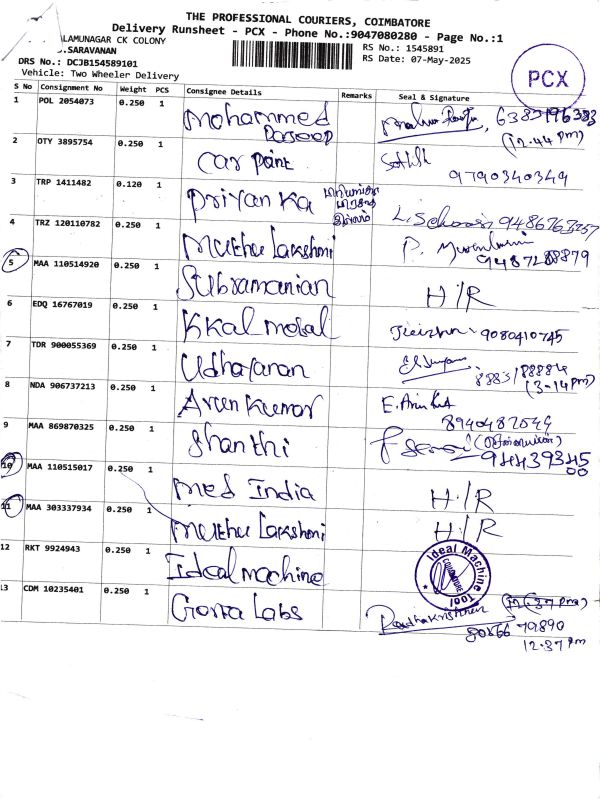 THE PROFESSIONAL COURIERS, COIMBATORE
Delivery Runsheet - PCX - Phone No.:9047080280 - Page No.:1
LAMUNAGAR CK COLONY
.SARAVANAN
RS No.: 1545891
DRS No.: DCJB154589101
RS Date: 07-May-2025
Vehicle: Two Wheeler Delivery
PCX
S No Consignment No Weight PCS Consignee Details Remarks Seal & Signature
1 POL 2054073 0.250 1 Mohammed
(12.44 pm)
2 OTY 3895754 0.250 1 Car point
9790340349
3 TRP 1411482 0.120 1 Priyanka
4 TRZ 120110782 0.250 1 Muthu Lakshmi
5 MAA 110514920 0.250 1 Subramanian H/R
6 EDQ 16767019 0.250 1 Kkal mosal 9080410745
7 TDR 900055369 0.250 1 Udhayanan
(3-14pm)
8 NDA 906737213 0.250 1 Arun Kumar
9 MAA 869870325 0.250 1 Shanthi
10 MAA 110515017 0.250 1 Med India H/R
11 MAA 303337934 0.250 1 Muthu Lakshmi H/R
12 RKT 9924943 0.250 1 Ideal machine
Ideal Machine Tool
COIMBATORE
13 CDM 10235401 0.250 1 Gowa Labs
Radhakrishnan
79890
12.37 pm